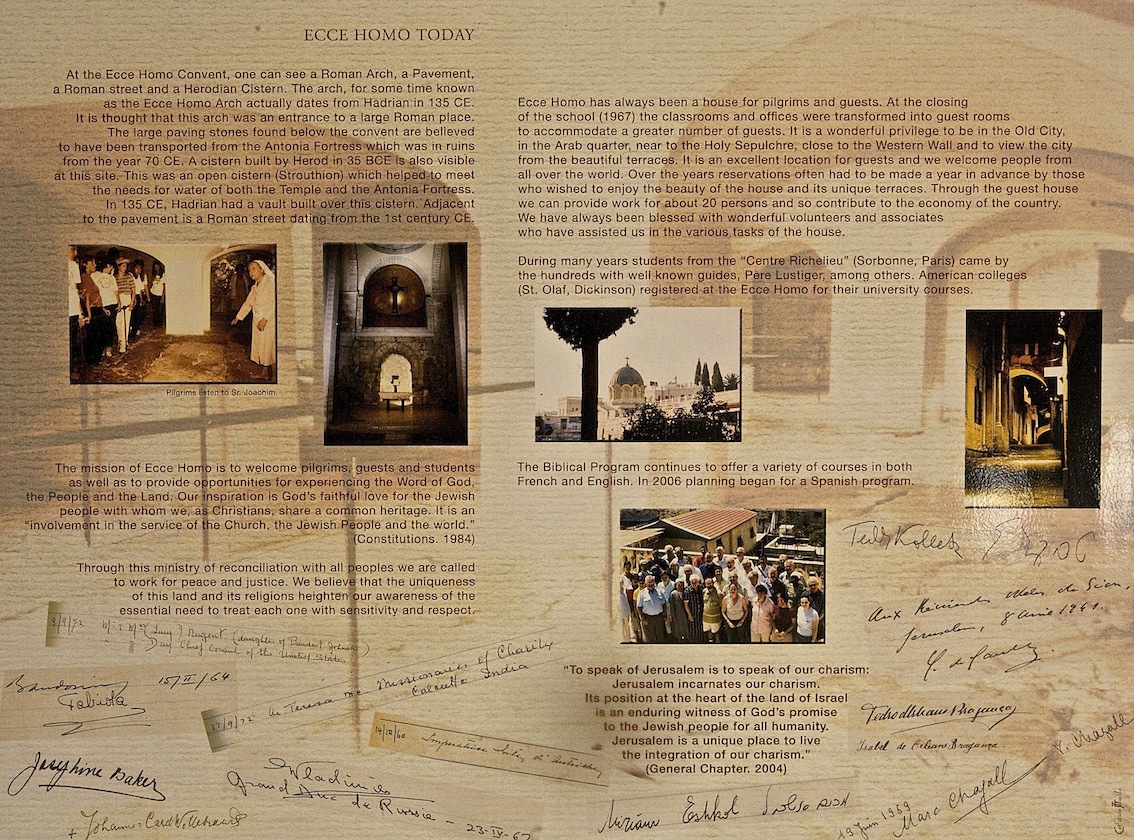 ECCE HOMO TODAY
At the Ecce Homo Convent, one can see a Roman Arch, a Pavement,
a Roman street and a Herodian Cistern. The arch, for some time known
as the Ecce Homo Arch actually dates from Hadrian in 135 CE.
It is thought that this arch was an entrance to a large Roman place.
The large paving stones found below the convent are believed
to have been transported from the Antonia Fortress which was in ruins
from the year 70 CE. A cistern built by Herod in 35 BCE is also visible
at this site. This was an open cistern (Strouthion) which helped to meet
the needs for water of both the Temple and the Antonia Fortress.
In 135 CE, Hadrian had a vault built over this cistern. Adjacent
to the pavement is a Roman street dating from the 1st century CE.
Pilgrims listen to Sr. Joachim.
The mission of Ecce Homo is to welcome pilgrims, guests and students
as well as to provide opportunities for experiencing the Word of God,
the People and the Land. Our inspiration is God's faithful love for the Jewish
people with whom we, as Christians, share a common heritage. It is an
“involvement in the service of the Church, the Jewish People and the world.”
(Constitutions. 1984)
Through this ministry of reconciliation with all peoples we are called
to work for peace and justice. We believe that the uniqueness
of this land and its religions heighten our awareness of the
essential need to treat each one with sensitivity and respect.
Ecce Homo has always been a house for pilgrims and guests. At the closing
of the school (1967) the classrooms and offices were transformed into guest rooms
to accommodate a greater number of guests. It is a wonderful privilege to be in the Old City,
in the Arab quarter, near to the Holy Sepulchre, close to the Western Wall and to view the city
from the beautiful terraces. It is an excellent location for guests and we welcome people from
all over the world. Over the years reservations often had to be made a year in advance by those
who wished to enjoy the beauty of the house and its unique terraces. Through the guest house
we can provide work for about 20 persons and so contribute to the economy of the country.
We have always been blessed with wonderful volunteers and associates
who have assisted us in the various tasks of the house.
During many years students from the “Centre Richelieu” (Sorbonne, Paris) came by
the hundreds with well known guides, Père Lustiger, among others. American colleges
(St. Olaf, Dickinson) registered at the Ecce Homo for their university courses.
The Biblical Program continues to offer a variety of courses in both
French and English. In 2006 planning began for a Spanish program.
“To speak of Jerusalem is to speak of our charism:
Jerusalem incarnates our charism.
Its position at the heart of the land of Israel
is an enduring witness of God's promise
to the Jewish people for all humanity.
Jerusalem is a unique place to live
the integration of our charism.”
(General Chapter. 2004)
9/9/72 Nugent (daughter of President Johnson)
of the United States
Baudouin 15/II/64
Fabiola
17/9/72 Teresa me Missionaries of Charity
Calcutta India
14/12/60
Josephine Baker
Wladimir
Grand Duc de Russie - 23-IV-62
+ Johannes Card Willebrands
Teddy Kollek
Aux Mères de Sion,
Jerusalem,
Isabel de Orleans Bragança
Miriam Eshkol
19 Juin 1969
Marc Chagall
V. Chagall